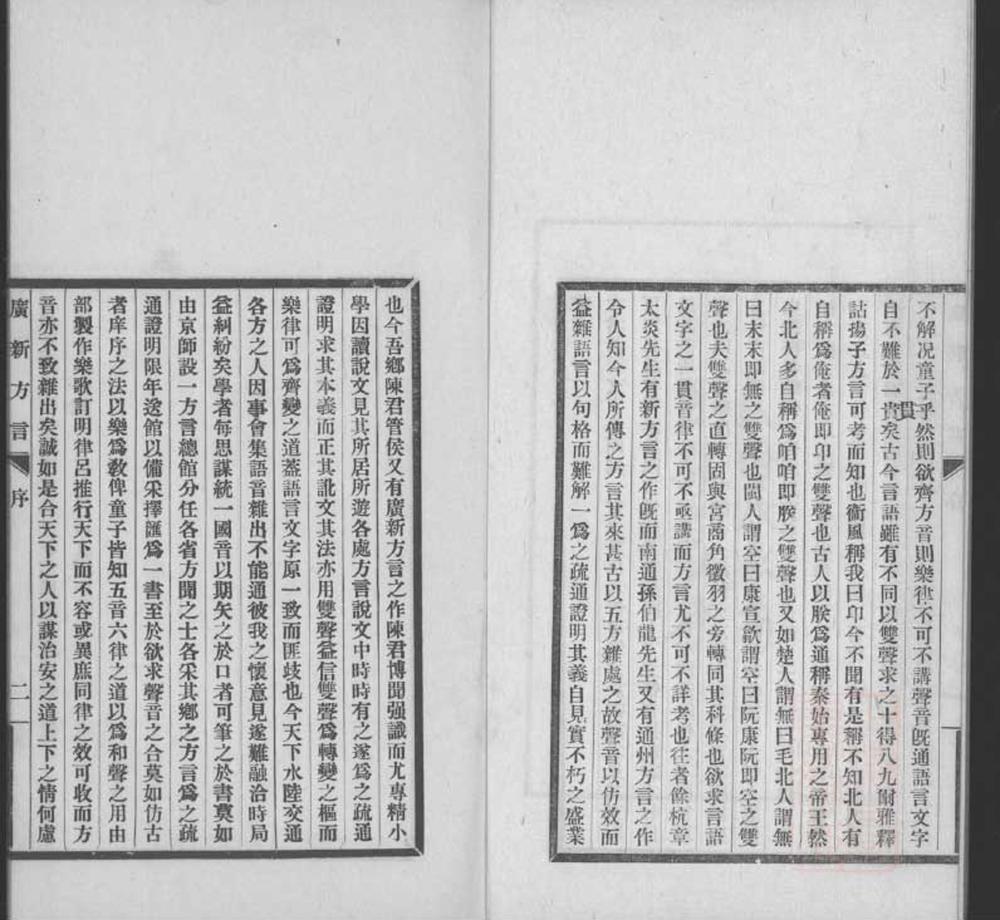 不解况童子乎然則欲齊方音則樂律不可不講聲音旣通語言文字
自不難於一貴矣古今言語雖有不同以雙聲求之十得八九爾雅釋
貫
詁揚子方言可考而知也衞風稱我曰卬今不聞有是稱不知北人有
自稱爲俺者俺即卬之雙聲也古人以朕爲通稱秦始專用之帝王然
今北人多自稱爲咱咱即朕之雙聲也又如楚人謂無曰毛北人謂無
曰末末即無之雙聲也閩人謂空曰康宣歙謂空曰阬康阬即空之雙
聲也夫雙聲之直轉固與宮商角徵羽之旁轉同其科條也欲求言語
文字之一貫音律不可不亟講而方言尤不可不詳考也往者餘杭章
太炎先生有新方言之作旣而南通孫伯龍先生又有通州方言之作
令人知今人所傳之方言其來甚古以五方雜處之故聲音以仿效而
益雜語言以句格而難解一爲之疏通證明其義自見實不朽之盛業
也今吾鄉陳君管侯又有廣新方言之作陳君博聞强識而尤專精小
學因讀說文見其所居所遊各處方言說文中時時有之遂爲之疏通
證明求其本義而正其訛文其法亦用雙聲益信雙聲爲轉變之樞而
樂律可爲齊變之道蓋語言文字原一致而匪歧也今天下水陸交通
各方之人因事會集語音雜出不能通彼我之懷意見遂難融洽時局
益糾紛矣學者每思謀統一國音以期矢之於口者可筆之於書莫如
由京師設一方言總館分任各省方聞之士各采其鄉之方言爲之疏
通證明限年送館以備采擇匯爲一書至於欲求聲音之合莫如仿古
者庠序之法以樂爲敎俾童子皆知五音六律之道以爲和聲之用由
部製作樂歌訂明律呂推行天下而不容或異庶同律之效可收而方
音亦不致雜出矣誠如是合天下之人以謀治安之道上下之情何慮
廣新方言 序 二